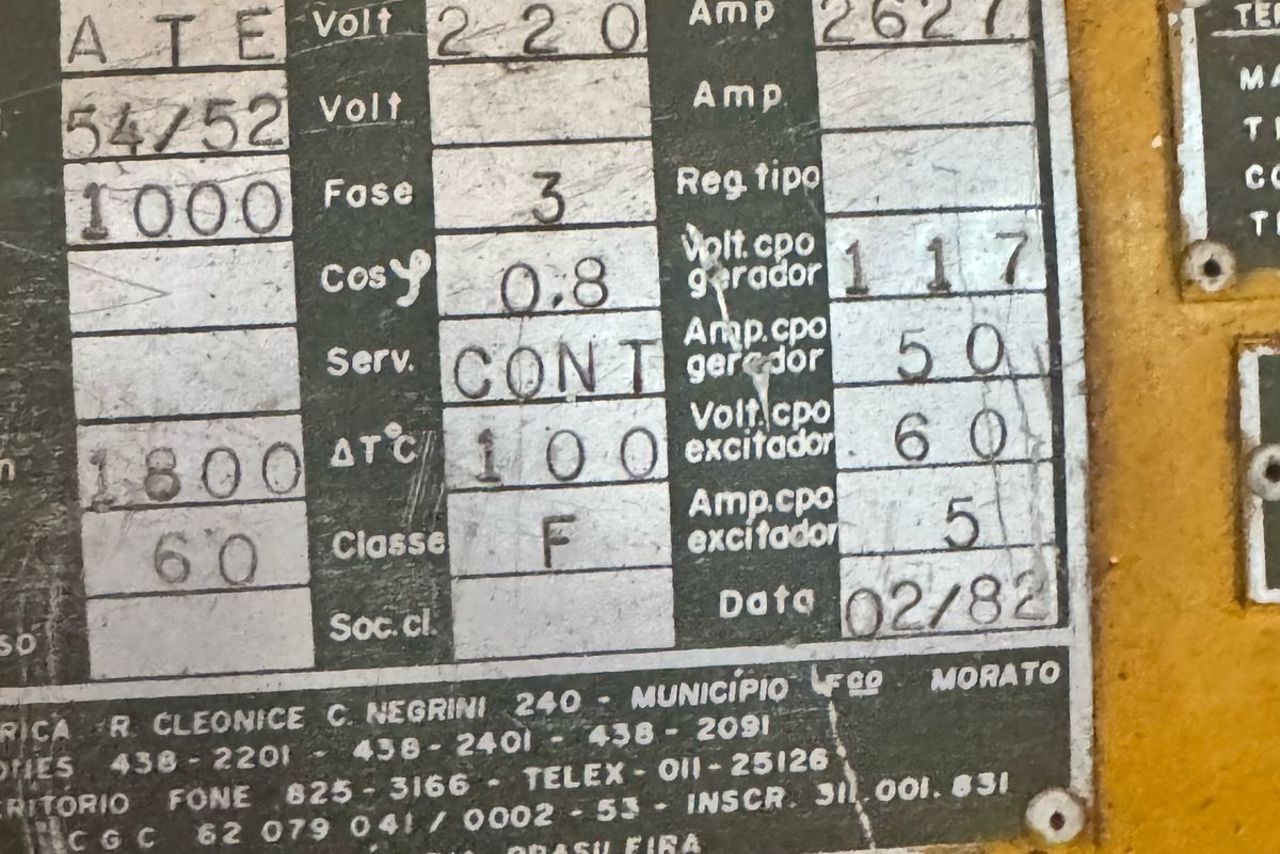 ATE Volt 220 Amp 2627
54/52 Volt Amp
1000 Fase 3 Reg. tipo
Cos φ 0.8 Volt. cpo gerador 117
Serv. CONT Amp. cpo gerador 50
1800 ΔT°C 100 Volt. cpo excitador 60
60 Classe F Amp. cpo excitador 5
Soc. cl. Data 02/82
R. CLEONICE C. NEGRINI 240 - MUNICÍPIO Fco MORATO
438-2201 - 438-2401 - 438-2091
FONE 825-3166 - TELEX - 011-25126
C G C 62 079 041 / 0002 - 53 - INSCR. 311.001.831